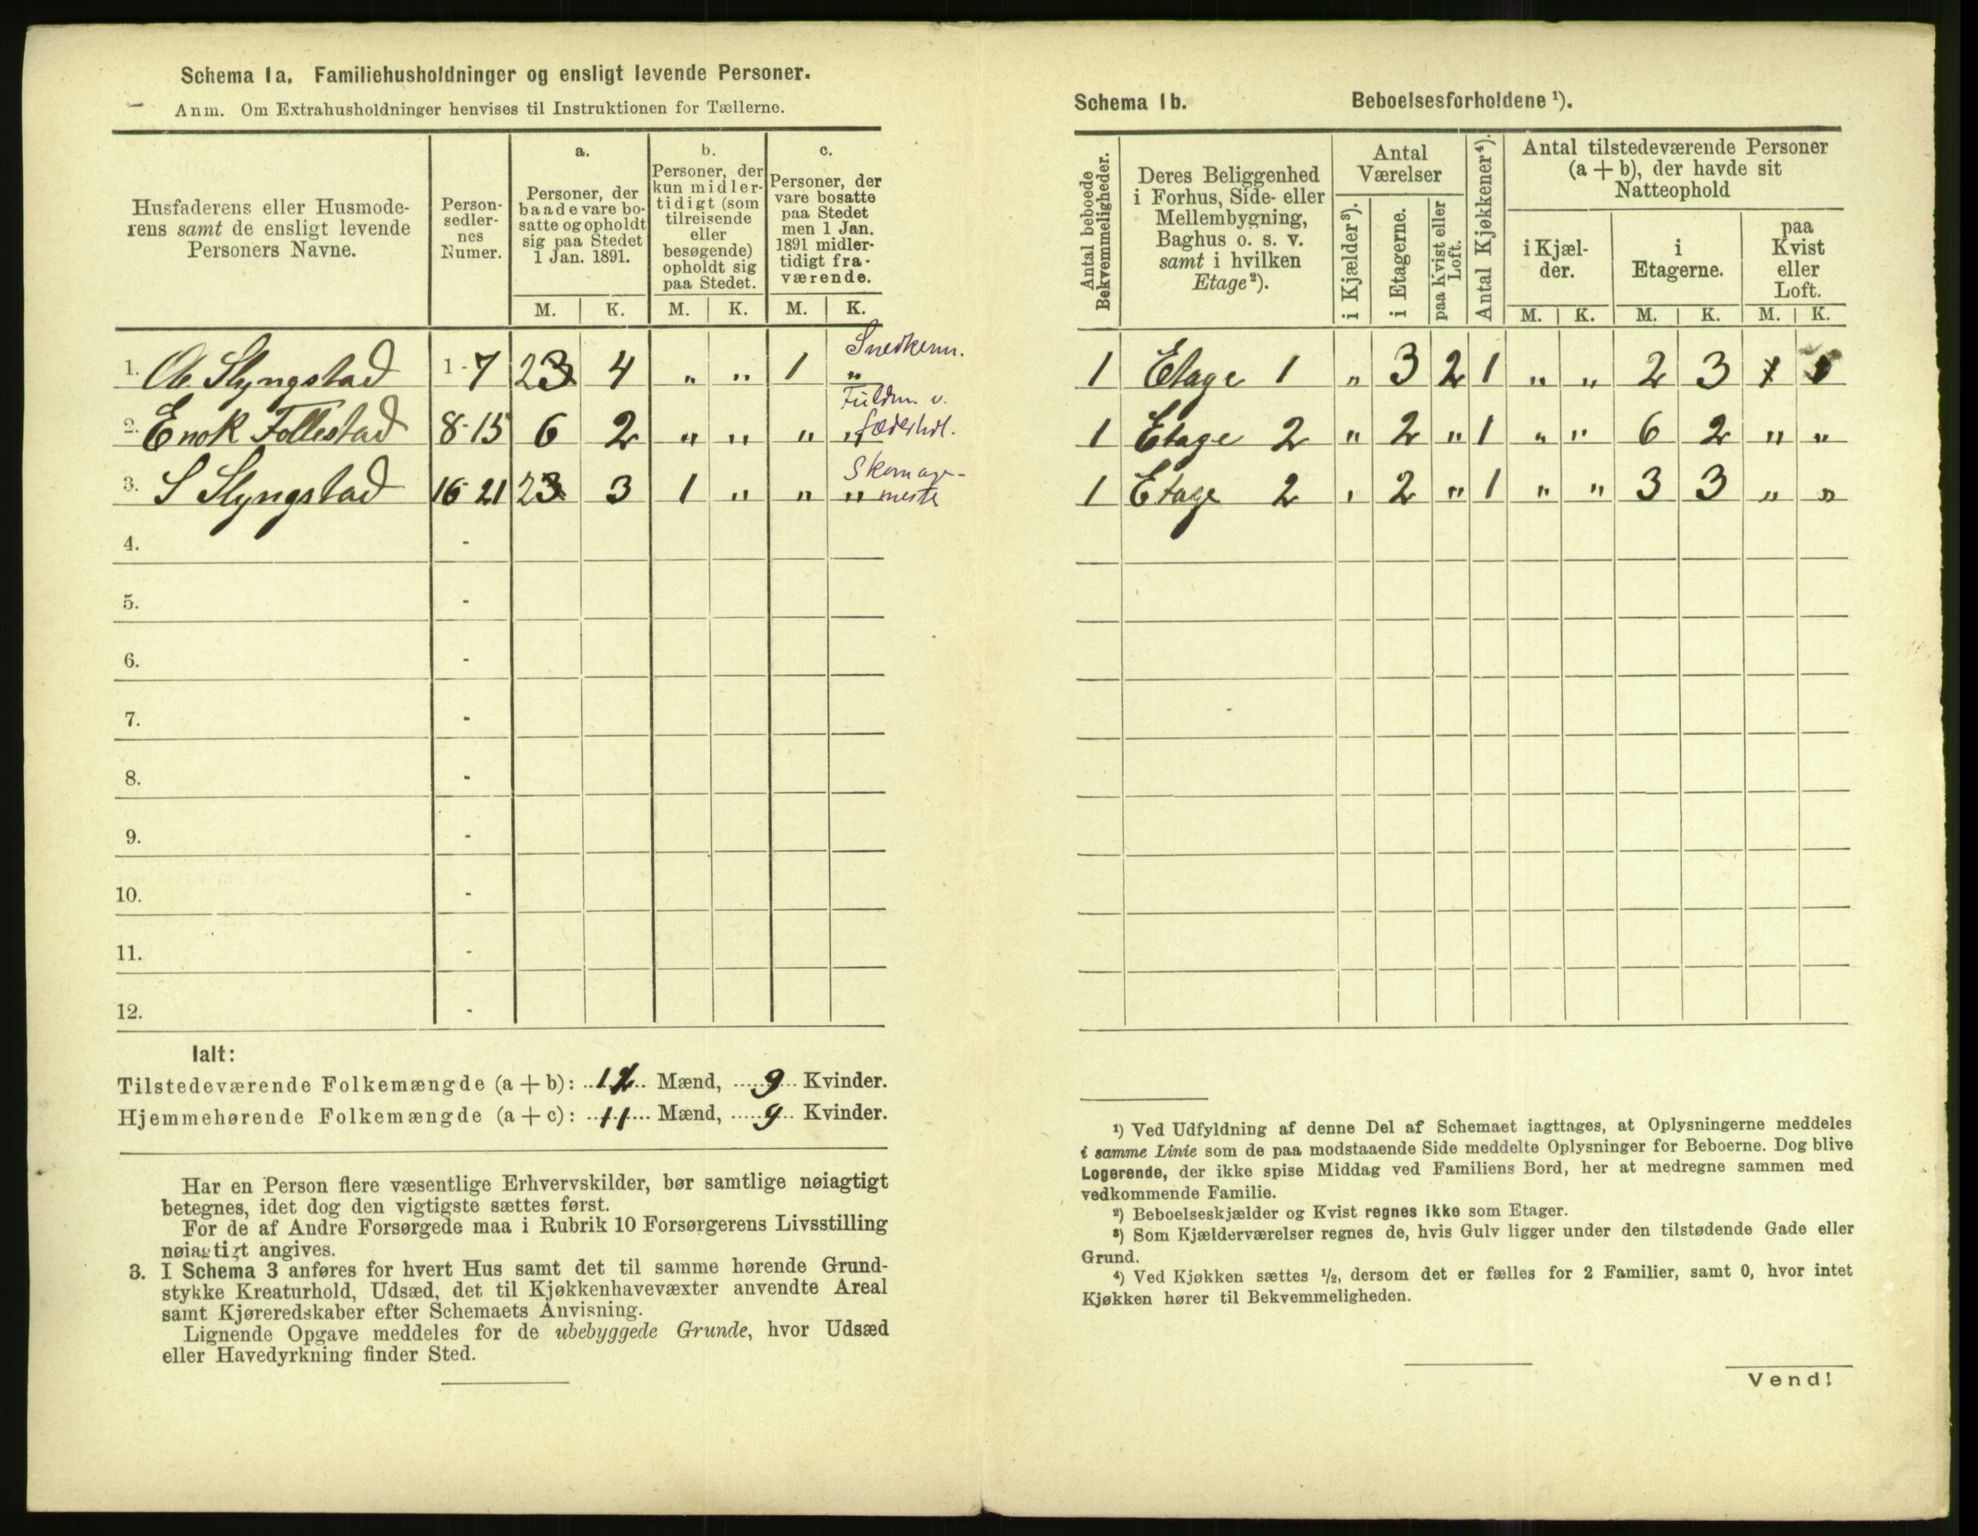 Schema 1a. Familiehusholdninger og ensligt levende Personer.
Anm. Om Extrahusholdninger henvises til Instruktionen for Tællerne.
Husfaderens eller Husmoderens samt de ensligt levende Personers Navne.
Person-sedler-nes Numer.
a. Personer, der baade vare bosatte og opholdt sig paa Stedet 1 Jan. 1891.
b. Personer, der kun midlertidigt (som tilreisende eller besøgende) opholdt sig paa Stedet.
c. Personer, der vare bosatte paa Stedet men 1 Jan. 1891 midlertidigt fraværende.
M. K. M. K. M. K.
Snedkerm.
1. Ole Slyngstad 1-7 2 4 „ „ 1 „
Fuldm. v.
2. Enok Follestad 8-15 6 2 „ „ „ „
Skomage-
3. S Slyngstad 16-21 2 3 1 „ „ „ meste
4. -
5. -
6. -
7. -
8. -
9. -
10. -
11. -
12. -
Ialt:
Tilstedeværende Folkemængde (a + b): 12 Mænd, 9 Kvinder.
Hjemmehørende Folkemængde (a + c): 11 Mænd, 9 Kvinder.
Har en Person flere væsentlige Erhvervskilder, bør samtlige nøiagtigt
betegnes, idet dog den vigtigste sættes først.
For de af Andre Forsørgede maa i Rubrik 10 Forsørgerens Livsstilling
nøiagtigt angives.
3. I Schema 3 anføres for hvert Hus samt det til samme hørende Grund-
stykke Kreaturhold, Udsæd, det til Kjøkkenhavevæxter anvendte Areal
samt Kjøreredskaber efter Schemaets Anvisning.
Lignende Opgave meddeles for de ubebyggede Grunde, hvor Udsæd
eller Havedyrkning finder Sted.
Schema 1b. Beboelsesforholdene ¹).
Antal beboede Bekvemmeligheder.
Deres Beliggenhed i Forhus, Side- eller Mellembygning, Baghus o. s. v. samt i hvilken Etage²).
Antal Værelser
i Kjælder³).
i Etagerne.
paa Kvist eller Loft.
Antal Kjøkkener⁴).
Antal tilstedeværende Personer (a + b), der havde sit Natteophold
i Kjæl-der.
i Etagerne.
paa Kvist eller Loft.
M. K. M. K. M. K.
1 Etage 1 „ 3 2 1 „ „ 2 3 1 1
1 Etage 2 „ 2 „ 1 „ „ 6 2 „ „
1 Etage 2 „ 2 „ 1 „ „ 3 3 „ „
¹) Ved Udfyldning af denne Del af Schemaet iagttages, at Oplysningerne meddeles
i samme Linie som de paa modstaaende Side meddelte Oplysninger for Beboerne. Dog blive
Logerende, der ikke spise Middag ved Familiens Bord, her at medregne sammen med
vedkommende Familie.
²) Beboelseskjælder og Kvist regnes ikke som Etager.
³) Som Kjælderværelser regnes de, hvis Gulv ligger under den tilstødende Gade eller
Grund.
⁴) Ved Kjøkken sættes ½, dersom det er fælles for 2 Familier, samt 0, hvor intet
Kjøkken hører til Bekvemmeligheden.
Vend!